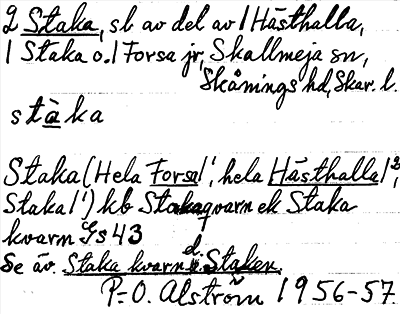 2 Staka, sb av del av 1 Hästhalla,
1 Staka o. 1 Forsa jr, Skallmeja sn,
Skånings hd, Skar. l.
stàka
Staka (Hela Forsa 1¹, hela Hästhalla 1³,
Staka 1¹) kb Stakaqvarn ek Staka
kvarn Gs 43
Se äv. Staka kvarn d. Staken.
P.-O. Alström 1956-57.